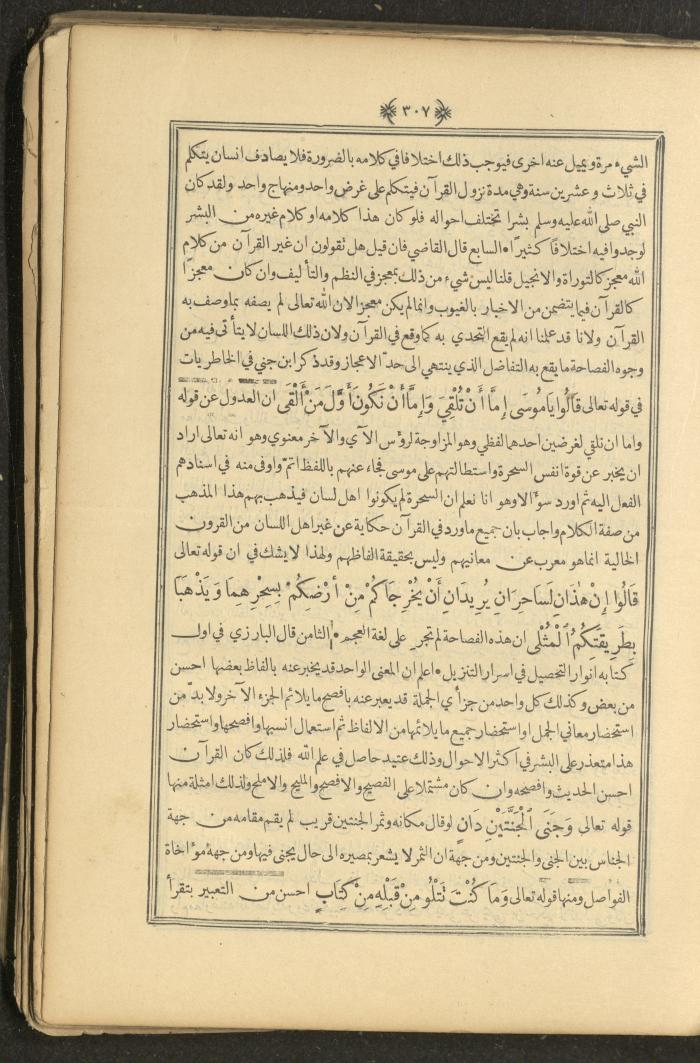 ٣٠٧
الشيء مرة ويميل عنه اخرى فيوجب ذلك اختلافا في كلامه بالضرورة فلا يصادف انسان يتكلم
في ثلاث وعشرين سنة وهي مدة نزول القرآن فيتكلم على غرض واحد ومنهاج واحد ولقد كان
النبي صلى الله عليه وسلم بشرا تختلف احواله فلو كان هذا كلامه او كلام غيره من البشر
لوجدوا فيه اختلافا كثيرا • السابع قال القاضي فان قيل هل تقولون ان غير القرآن من كلام
الله معجز كالتوراة والانجيل قلنا ليس شيء من ذلك بمعجز في النظم والتأليف وان كان معجزا
كالقرآن فيما يتضمن من الاخبار بالغيوب وانما لم يكن معجزا لان الله تعالى لم يصفه بما وصف به
القرآن ولانا قد علمنا انه لم يقع التحدي به كما وقع في القرآن ولان ذلك اللسان لا يتأتى فيه من
وجوه الفصاحة ما يقع به التفاضل الذي ينتهي الى حدّ الاعجاز وقد ذكر ابن جني في الخاطريات
في قوله تعالى قَالُوا يَامُوسَى إِمَّا أَنْ تُلْقِيَ وَإِمَّا أَنْ نَكُونَ أَوَّلَ مَنْ أَلْقَى ان العدول عن قوله
واما ان نلقي لغرضين احدهما لفظي وهو المزاوجة لرؤس الآي والآخر معنوي وهو انه تعالى اراد
ان يخبر عن قوة انفس السحرة واستطالتهم على موسى فجاء عنهم باللفظ اتمّ واوفى منه في اسنادهم
الفعل اليه ثم اورد سؤالا وهو انا نعلم ان السحرة لم يكونوا اهل لسان فيذهب بهم هذا المذهب
من صفة الكلام واجاب بان جميع ما ورد في القرآن حكاية عن غير اهل اللسان من القرون
الخالية انما هو معرب عن معانيهم وليس بحقيقة الفاظهم ولهذا لا يشك في ان قوله تعالى
قَالُوا إِنْ هٰذَانِ لَسَاحِرَانِ يُرِيدَانِ أَنْ يُخْرِجَاكُمْ مِنْ أَرْضِكُمْ بِسِحْرِهِمَا وَيَذْهَبَا
بِطَرِيقَتِكُمُ ٱلْمُثْلَى ان هذه الفصاحة لم تجر على لغة العجم • الثامن قال البارزي في اول
كتابه انوار التحصيل في اسرار التنزيل • اعلم ان المعنى الواحد قد يخبر عنه بالفاظ بعضها احسن
من بعض وكذلك كل واحد من جزأي الجملة قد يعبر عنه بافصح ما يلائم الجزء الآخر ولا بدّ من
استحضار معاني الجمل او استحضار جميع ما يلائمها من الالفاظ ثم استعمال انسبها وافصحها واستحضار
هذا متعذر على البشر في اكثر الاحوال وذلك عتيد حاصل في علم الله فلذلك كان القرآن
احسن الحديث وافصحه وان كان مشتملا على الفصيح والافصح والمليح والاملح ولذلك امثلة منها
قوله تعالى وَجَنَى ٱلْجَنَّتَيْنِ دَانٍ لو قال مكانه وثمر الجنتين قريب لم يقم مقامه من جهة
الجناس بين الجنى والجنتين ومن جهة ان الثمر لا يشعر بمصيره الى حال يجنى فيها ومن جهة مؤاخاة
الفواصل ومنها قوله تعالى وَمَا كُنْتَ تَتْلُو مِنْ قَبْلِهِ مِنْ كِتَابٍ احسن من التعبير بتقرأ